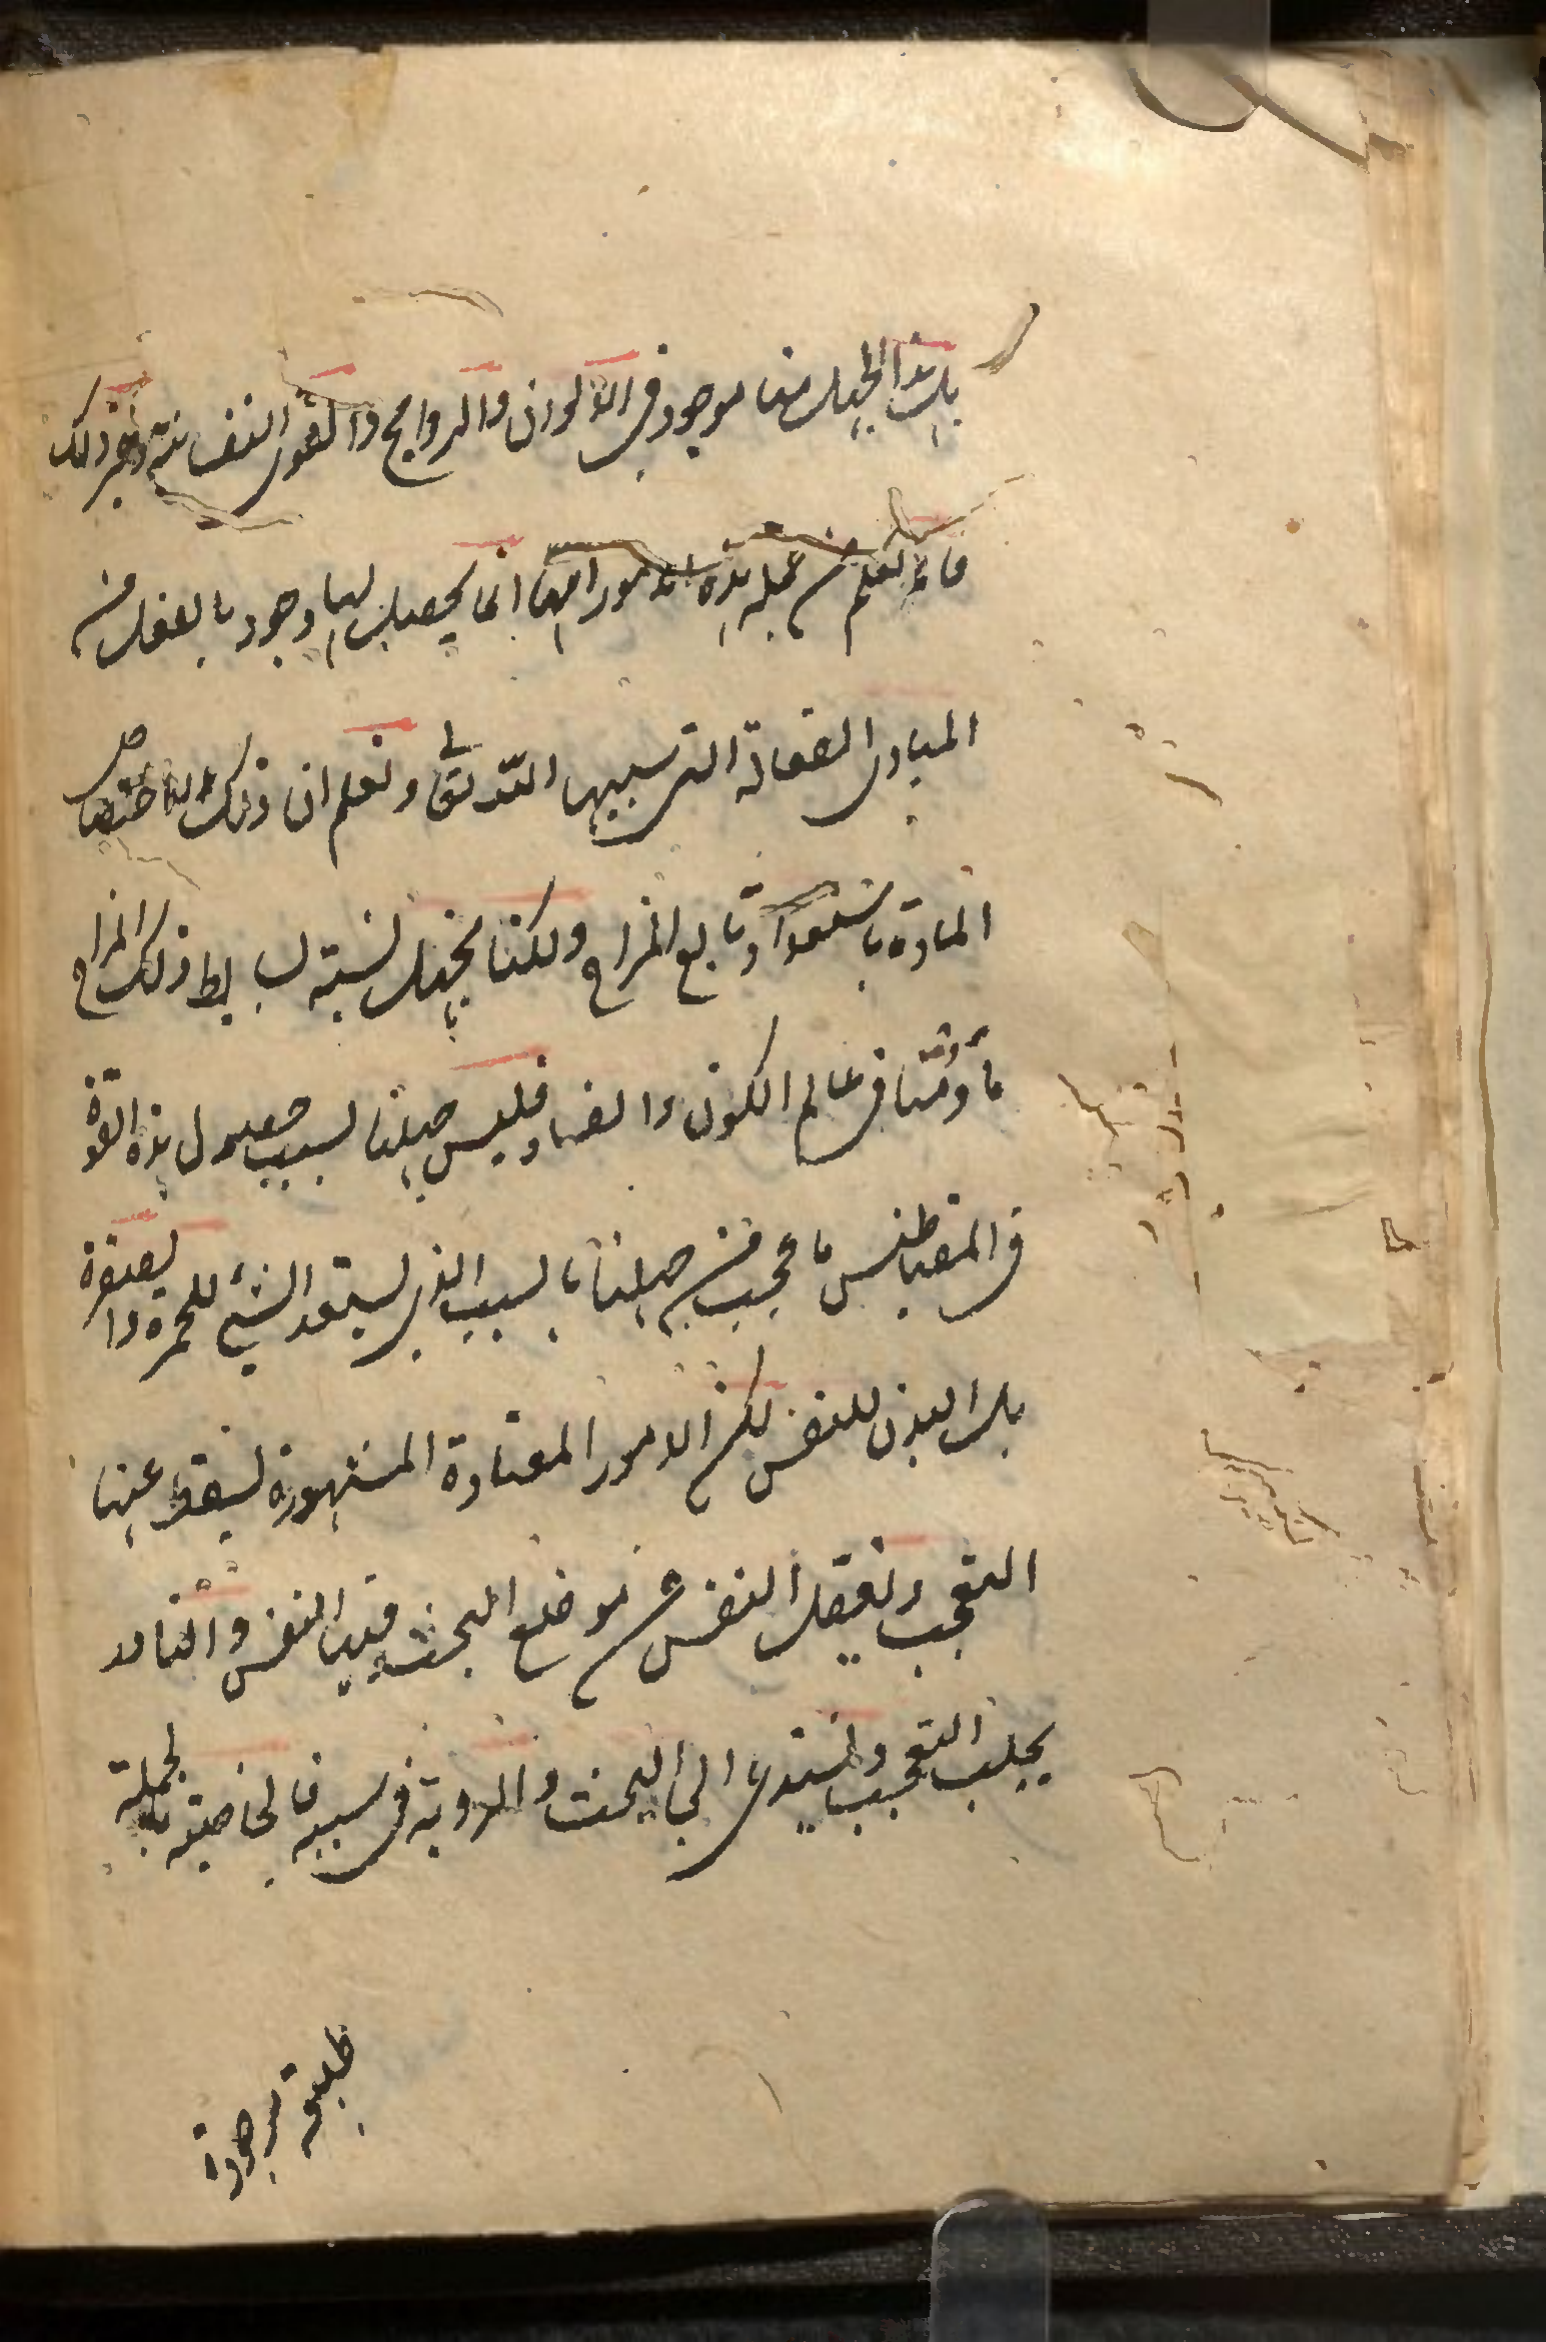 بل هذا الجهل منا موجود فى الالوان والروايح والقوى النفسانية وغير ذلك
فانا نعلم من جملة هذه الامور انها انما يحصل لها وجود بالفعل من
المبادى الفعالة التى سببها الله تعالى ونعلم ان ذلك لاختصاص
المادة باستعداد تابع المزاج ولكنا نجهل نسبة بسايط ذلك المزاج
فى عالم الكون والفساد فليس جهلنا بسبب حصول هذه القوة
فى المقناطيس باعجب من جهلنا بالسبب الذى يستعد الشئ للحمرة والصفرة
بل البدن للنفس لكن الامور المعتادة المشهورة يسقط عنها
التعجب وتغفل النفس عن موضع البحث فيها النفس والنادر
يجلب التعجب ويستدعى الى البحث والروية فى سببه فالخاصية بالجملة
طبيعة موجودة